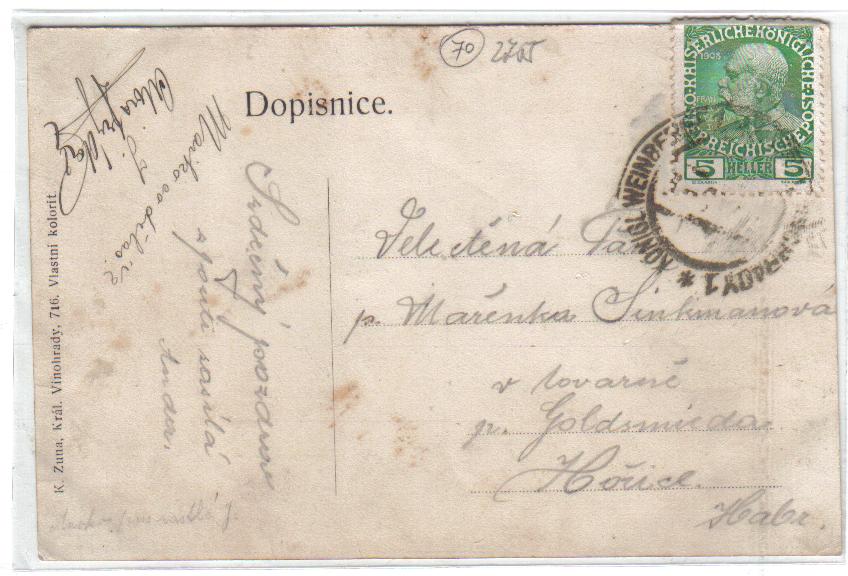 70 2705
Dopisnice.
1908
KAISERLICHE KÖNIGLICHE
ÖSTERREICHISCHE POST
5 HELLER 5
KÖNIGL. WEINBERGE
VINOHRADY 1
Velectěná
p. Mařenka Sinkmanová
v továrně
p. Goldsmieda
Hořice.
Habr.
Srdečný pozdrav
s pouti zasílá
Anda.
Mařko co děláš?
K. Zuna, Král. Vinohrady, 716. Vlastní kolorit.